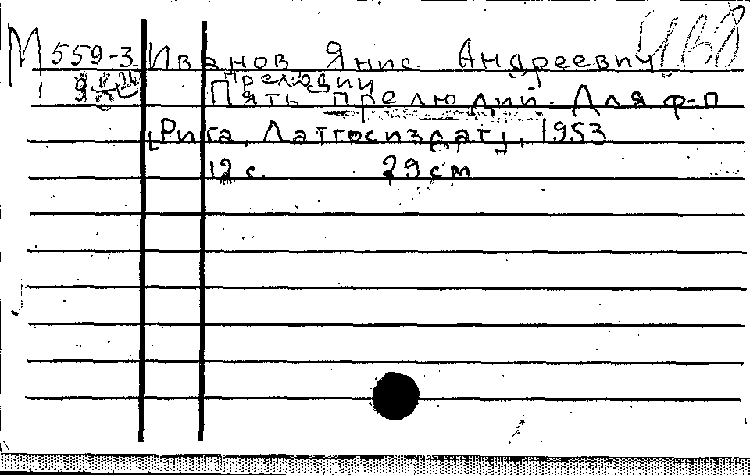 М 559-3 Иванов Янис Андреевич
Прелюдии
Пять прелюдий. Для ф-п
[Рига, Латгосиздат], 1953
12 с. 29 cm